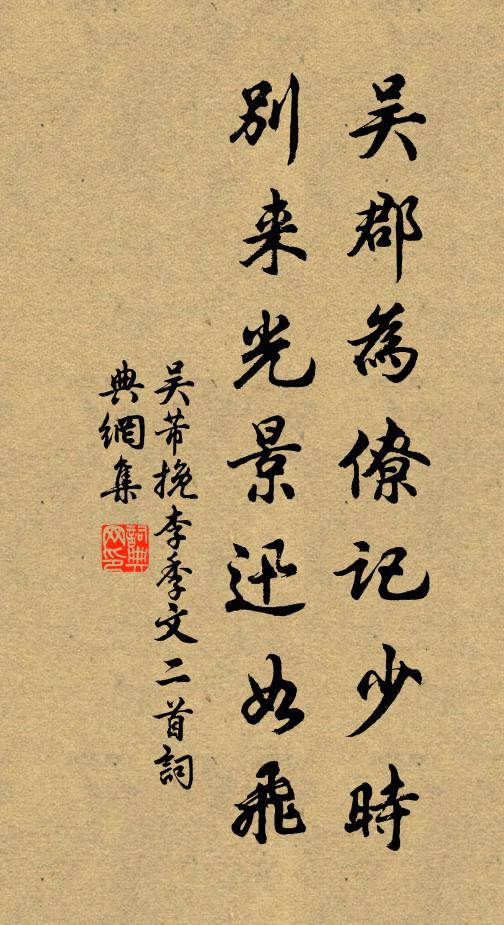 吴郡為僚記少時
别来光景迅如飛
吴芾挽李季文二首詞
典網集
詞典網印